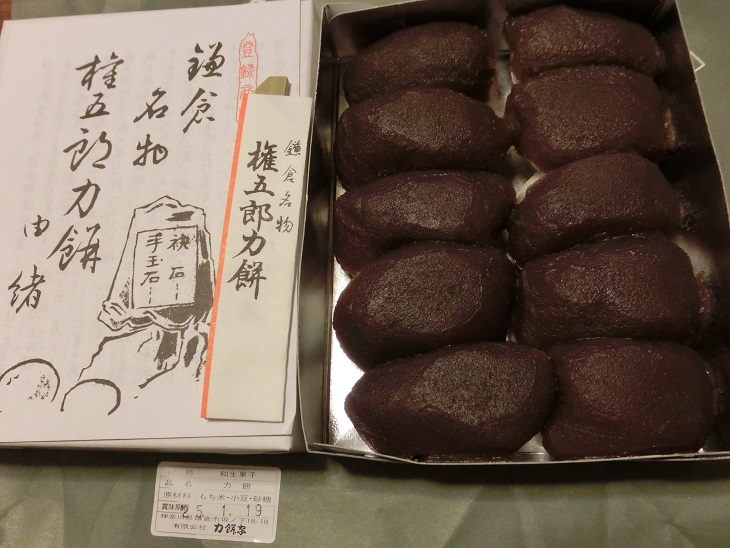 登録商
鎌倉
名物
権五郎力餅
由緒
袂石
手玉石
鎌倉名物
権五郎力餅
和生菓子
品名 力餅
原材料 もち米・小豆・砂糖
賞味期限 25.1.19
神奈川県鎌倉市坂ノ下18-18
有限会社 力餅家